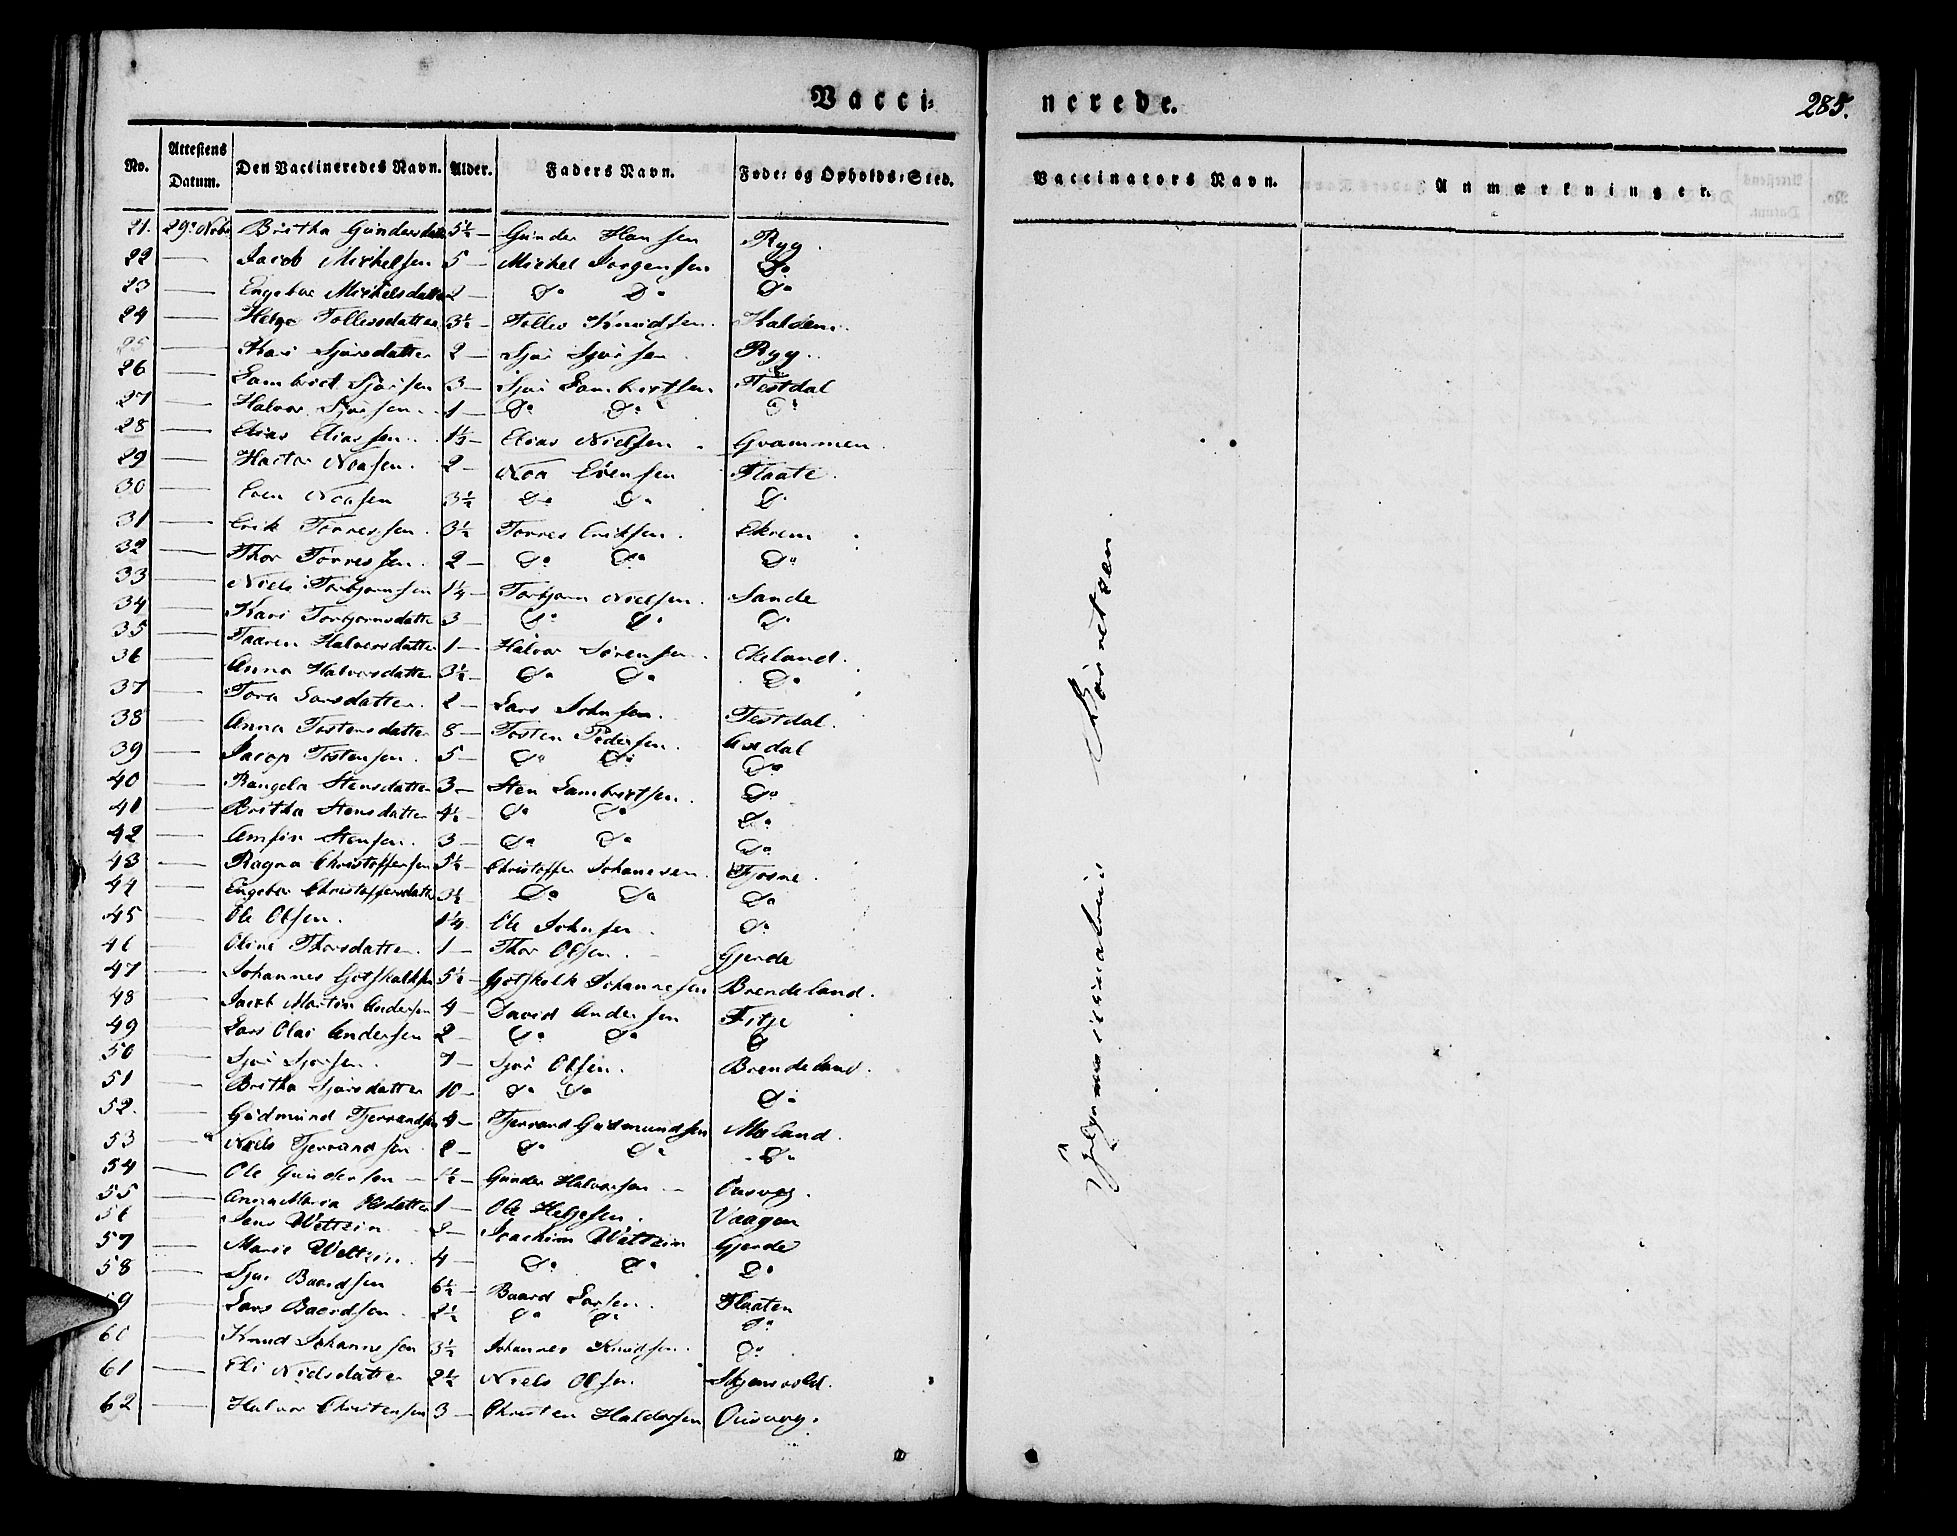 Vacci-
nerede.
285.
No. Attestens Datum. Den Vaccineredes Navn. Alder. Faders Navn. Føde- og Opholds-Sted.
Vaccinators Navn. Anmærkninger.
21. 29de Novbr Britha Gundersdatter 5½ — Gunder Hansen Ryg.
22 — Jacob Mikkelsen 5 — Mickel Jørgensen Do
23 — Engebor Mikkelsdatter 2 — Do Do Do
24 — Helge Tollevsdatter 3½ — Tollev Knudsen. Haldem.
25 — Kari Sjursdatter 2 — Sjur Sjursen Ryg.
26 — Lambrict Sjursen 3 — Sjur Lambrictsen Testdal
27 — Halvor Sjursen 1 — Do Do Do
28 — Elias Eliassen. Elias Nielsen Grammen
29 — Noasen. 2 — Noa Evensen Flaate.
30 — Even Noasen 3½ Do Do Do
31 — Erik Torressen. 3½ Torres Eriksen. Ekrem
32 — Thor Torressen. 2 — Do Do Do
33 — Niels Torbjørnsen 1¼ — Torbjørn Nielsen. Sande
34 — Kari Torbjørnsdatter 3 — Do Do Do
35 — Taaren Halvorsdatter 1 — Halvor Sørensen. Ekeland.
36 — Anna Halvorsdatter 3½ — Do Do Do
37 — Tora Larsdatter. 2 — Lars Johnsen. Testdal.
38 — Anna Tostensdatter 8 — Tosten Pedersen. Axdal
39 — Jacop Tostensen. 5 — Do Do Do
40 — Rangela Stensdatter 3 — Sten Lambertsen. Do
41 — Britha Stensdatter 4½ Do Do Do
42 — Amfin Stensen. 3 — Do Do Do
43 — Ragna Christoffersen 5½ — Christoffer Johanesen. Fjosne.
44 — Engebor Christoffersdatter 3½ Do Do Do
45 — Ole Olsen. 1¼ Ole Johnsen. Do
46 — Oline Thorsdatter. 1 — Thor Olsen. Gjerde
47 — Johannes Gotskalksen 5½ — Gotskalk Johannesen Brendeland.
48 — Jacob Martin Andersen 4 — David Andersen Fitje
49 — Lars Olai Andersen 2 — Do Do Do
50 — Sjur Sjursen. 7 — Sjur Olsen. Brendeland.
51 — Britha Sjursdatter 10 — Do Do Do
52. — Gudmund Tjerrandsen 4 — Tjerrand Gudmundsen Mæland.
53 — Niels Tjerrandsen. 2 — Do Do Do
54 — Ole Gundersen — 1½ — Gunder Halvorsen — Ousvog.
55 — Anna Maria Olsdatter 1 — Ole Helgesen. Vaagen
56 — Jens Weltzin 2 — Joachim Weltzin Gjerde
57 — Marie Weltzin. 4 — Do Do Do
58 — Sjur Baardsen 6½ — Baard Larsen. Flaaten
59 — Lars Baardsen. 2½ Do Do Do
60 — Knud Johannesen 3½ Johannes Knudsen. Do
61 — Eli Nielsdatter 2½ Niels Olsen. Skjensvold.
62 — Halvor Christensen 3 — Christen Haldorsen Ousvog.